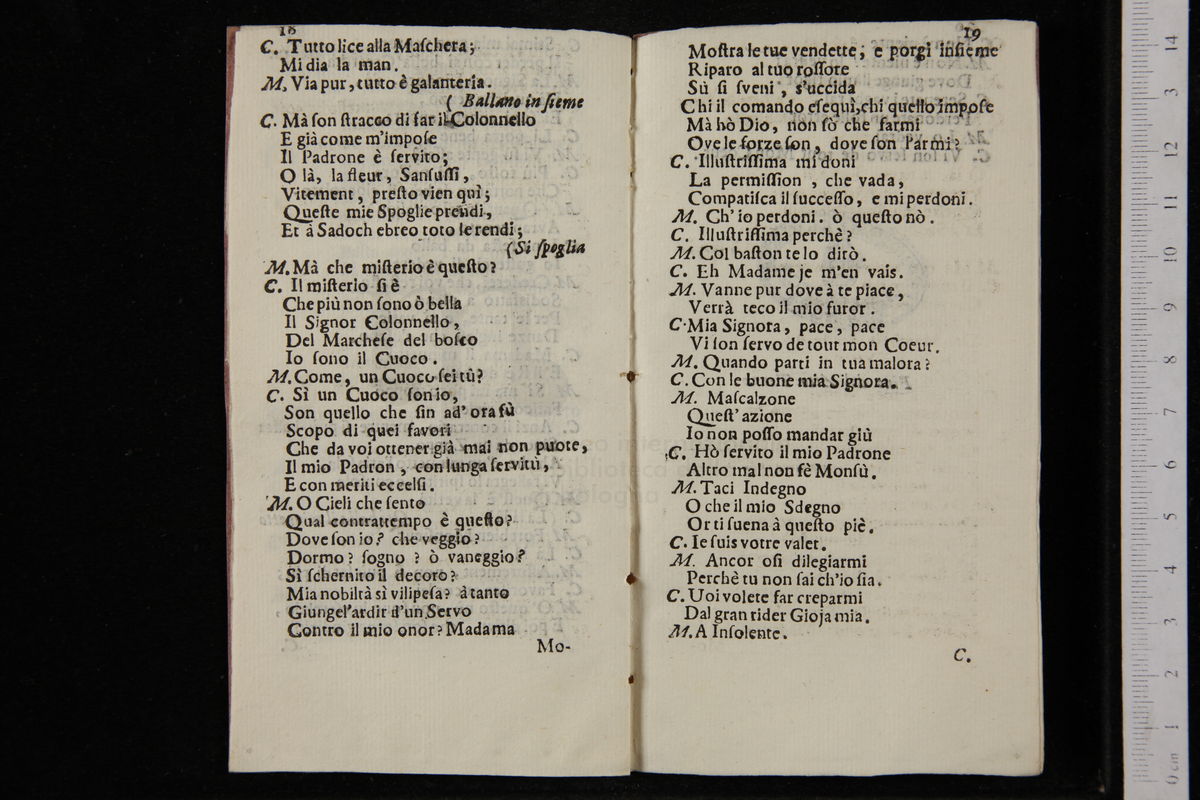 18
C. Tutto lice alla Maſchera;
Mi dia la man.
M, Via pur, tutto è galanteria.
( Ballano in ſieme
C. Mà ſon ſtracco di far il Colonnello
E già come m'impoſe
Il Padrone è ſervito;
O là, la fleur, Sanſuſſì,
Vitement, preſto vien quì;
Queſte mie Spoglie prendi,
Et à Sadoch ebreo toto le rendi;
(Si ſpoglia
M. Mà che miſterio è queſto?
C. Il miſterio ſi è
Che più non ſono ò bella
Il Signor Colonnello,
Del Marcheſe del boſco
Io ſono il Cuoco.
M. Come, un Cuoco ſei tù?
C. Sì un Cuoco ſon io,
Son quello che ſin ad' ora fù
Scopo di quei favori
Che da voi ottener già mai non puote,
Il mio Padron, con lunga ſervitù,
E con meriti eccelſi.
M. O Cieli che ſento
Qual contrattempo è queſto?
Dove ſon io? che veggio?
Dormo? ſogno? ò vaneggio?
Sì ſchernito il decoro?
Mia nobiltà sì vilipeſa? à tanto
Giunge l'ardir d'un Servo
Contro il mio onor? Madama
Mo-
19
Moſtra le tue vendette; e porgi inſieme
Riparo al tuo roſſore
Sù ſi ſveni, s'uccida
Chi il comando eſequì, chi quello impoſe
Mà hò Dio, non sò che farmi
Ove le forze ſon, dove ſon l'armi?
C. Illuſtriſſima mi doni
La permiſſion, che vada,
Compatiſca il ſucceſſo, e mi perdoni.
M. Ch' io perdoni. ò queſto nò.
C. Illuſtriſſima perchè?
M. Col baſton te lo dirò.
C. Eh Madame je m'en vais.
M. Vanne pur dove à te piace,
Verrà teco il mio furor.
C. Mia Signora, pace, pace
Vi ſon ſervo de tout mon Coeur.
M. Quando parti in tua malora?
C. Con le buone mia Signora.
M. Maſcalzone
Queſt' azione
Io non poſſo mandar giù
C. Hò ſervito il mio Padrone
Altro mal non fè Monſù.
M. Taci Indegno
O che il mio Sdegno
Or ti ſuena à queſto piè.
C. Ie ſuis votre valet.
M. Ancor oſi dilegiarmi
Perchè tu non ſai ch'io ſia.
C. Uoi volete far creparmi
Dal gran rider Gioja mia.
M. A Inſolente.
C.